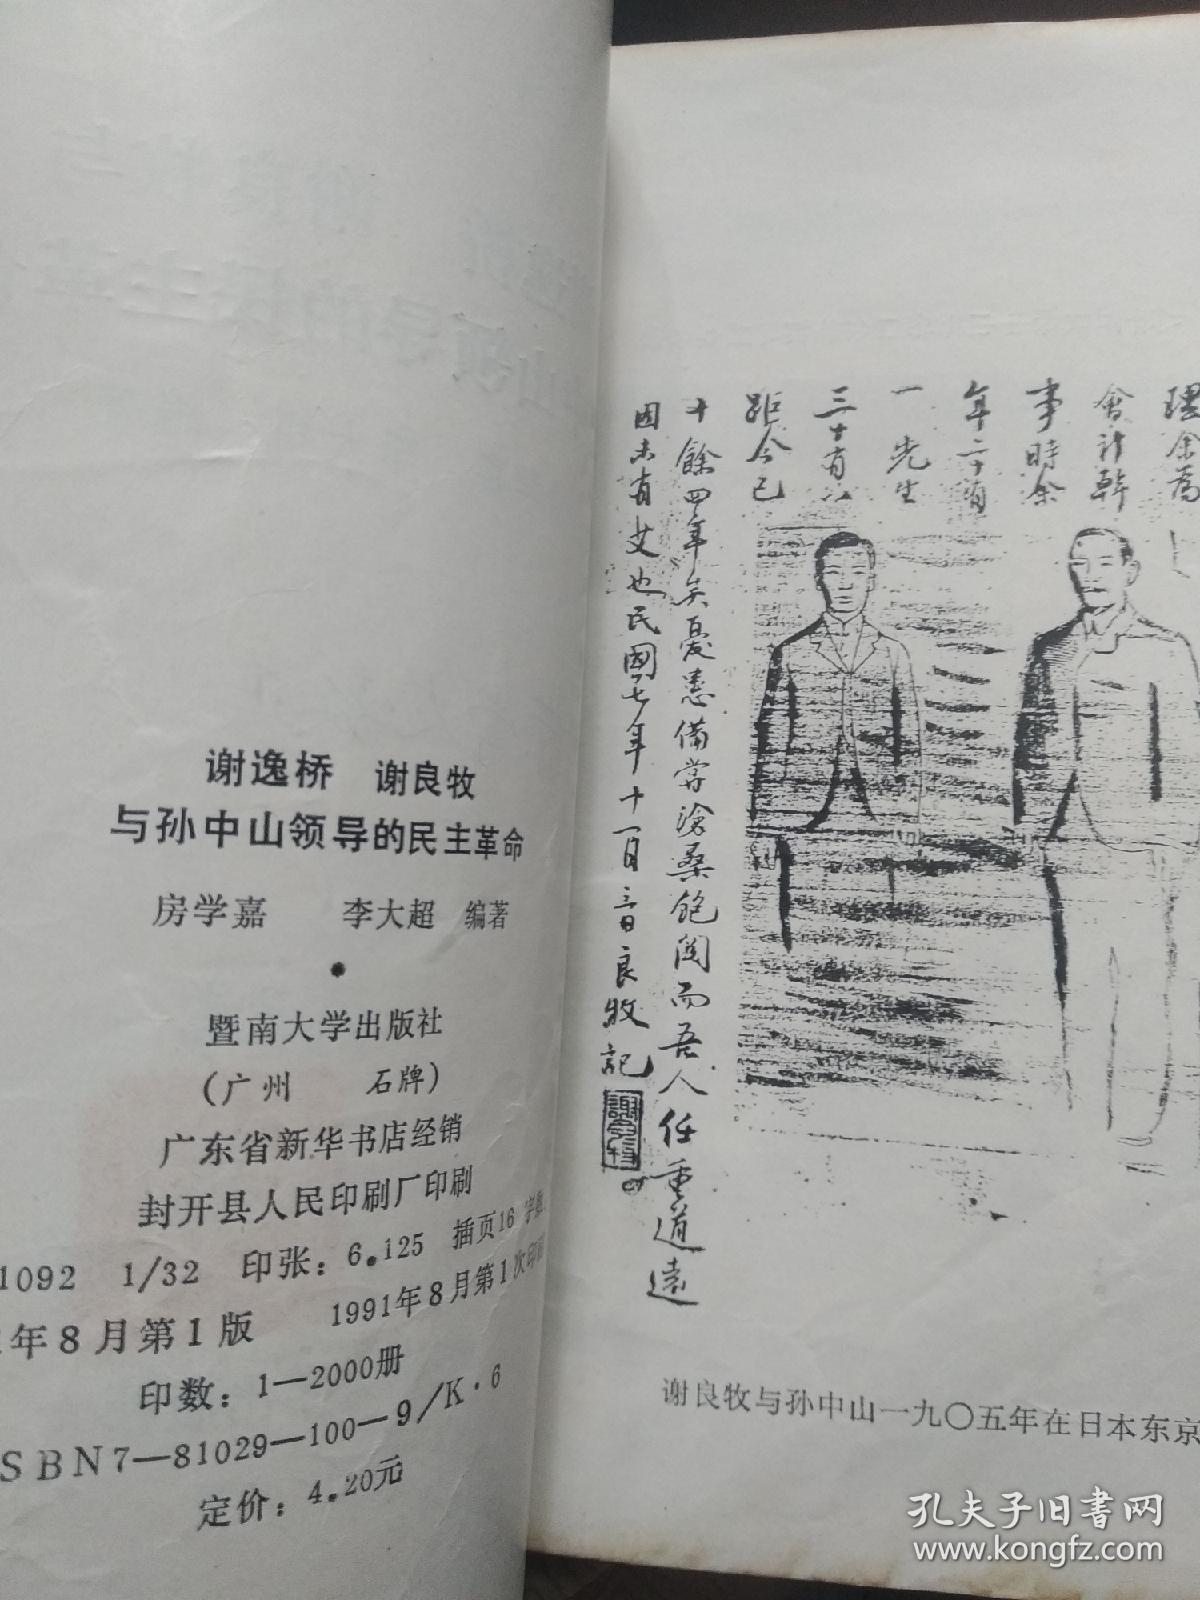 谢逸桥 谢良牧
与孙中山领导的民主革命
房学嘉 李大超 编著
暨南大学出版社
(广州 石牌)
广东省新华书店经销
封开县人民印刷厂印刷
1092 1/32 印张：6.125 插页16
年8月第1版 1991年8月第1次印
印数：1—2000册
SBN7—81029—100—9/K·6
定价：4.20元
理余为
會计幹
事時余
年二十有
一先生
三十有八
距今已
十餘四年矣憂患備嘗滄桑飽閲而吾人任重道遠
固未有艾也民國七年十一月三日良牧記
谢良牧与孙中山一九〇五年在日本东京
孔夫子旧书网
www.kongfz.com